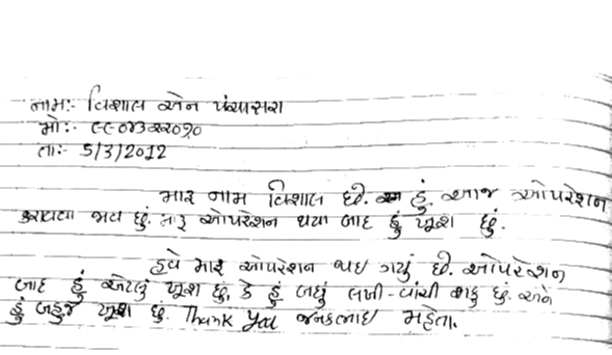 નામ:- વિશાલ એન પંચાસરા
મો:- ૯૯૦૪૩૨૨૦૧૦
તા:- 5/3/2012
મારૂ નામ વિશાલ છે. હું આજ ઓપરેશન
કરાવવા જાવ છું. મારૂ ઓપરેશન થયા બાદ હું ખુશ છું.
હવે મારૂ ઓપરેશન થઇ ગયું છે. ઓપરેશન
બાદ હું એટલું ખુશ છુ, કે હું બધું લખી-વાંચી શકુ છું. અને
હું બહુજ ખુશ છું. Thank You જનકભાઇ મહેતા.